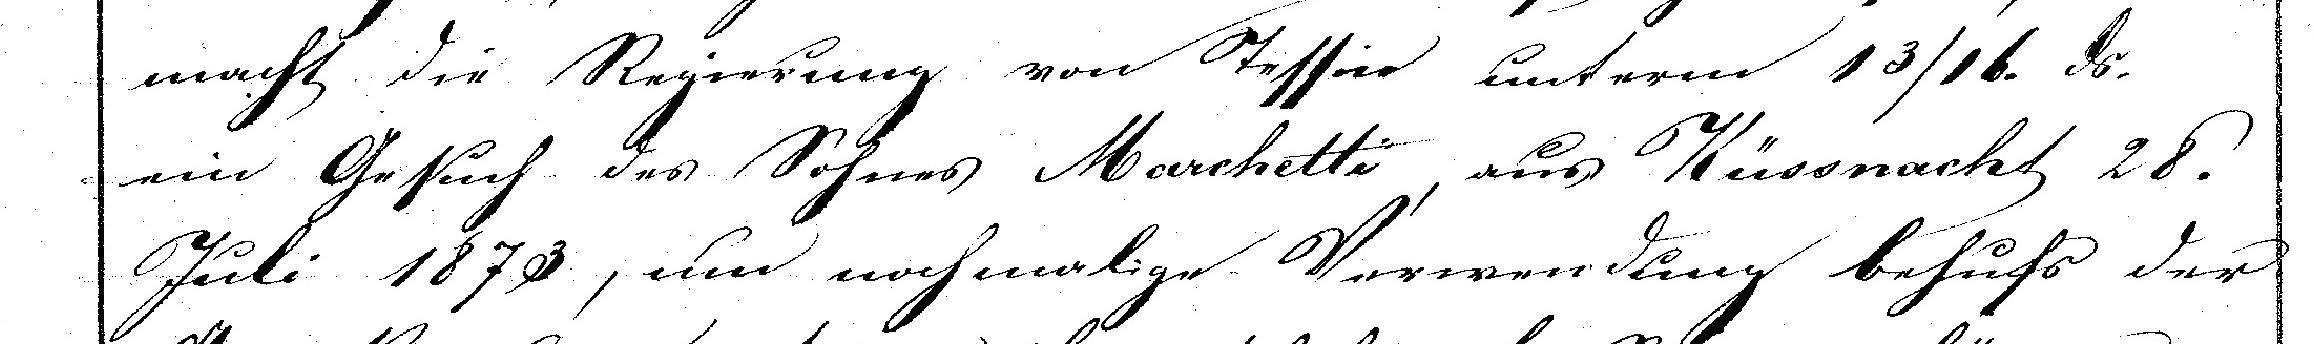 macht die Regierung von Tessin unterm 13/16. ds.
ein Gesuch des Sohnes Marchetti, aus Küssnacht 28.
Juli 1873, um nochmalige Verwendung behufs der